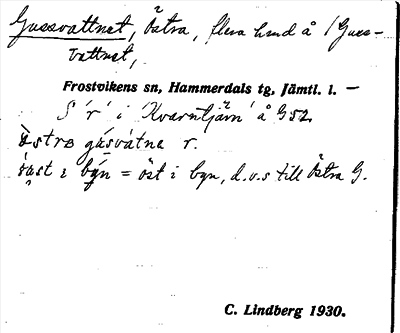 Gussvattnet, Östra, flera hmd å / Guss-
vattnet,
Frostvikens sn, Hammerdals tg, Jämtl. l. —
S 'r' i 'Kvarntjärn' å G52.
òstrə gásvàtnə r.
i býn = öst i byn, d.v.s till Östra G.
C. Lindberg 1930.